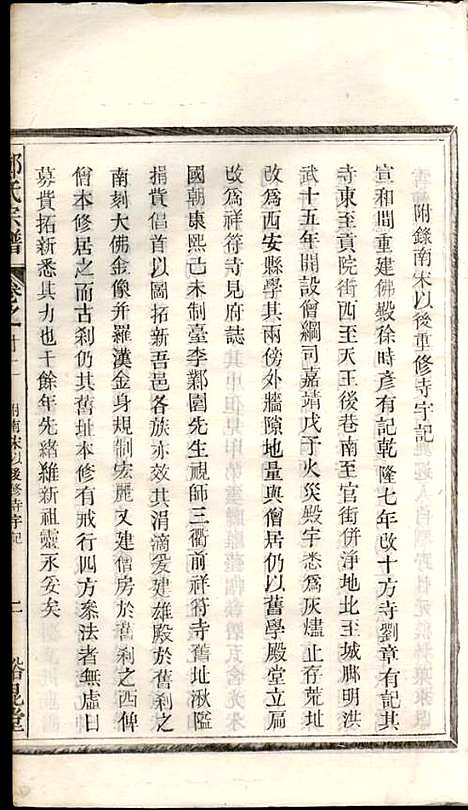 附錄南宋以後重修寺宇記
宣和間重建佛殿徐時彥有記乾隆七年改十方寺劉章有記其
寺東至貢院街西至天王後巷南至官街併淨地北至城鄉明洪
武十五年開設僧綱司嘉靖戊子火災殿宇悉為灰燼止存荒址
改為西安縣學其兩傍外牆隙地量與僧居仍以舊學殿堂立局
改為祥符寺見府誌
國朝康熙己未制臺李鄴園先生視師三衢前祥符寺舊址湫隘
捐貲倡首以圖拓新吾邑各族亦效其涓滴爰建雄殿於舊剎之
南刻大佛金像并羅漢金身規制宏麗又建僧房於舊剎之西俾
僧本修居之而古剎仍其舊址本修有戒行四方叅法者無虛日
募貲拓新悉其力也千餘年先緒維新祖靈永妥矣
氏宗譜
卷之十二
附南宋以後修寺宇記
二
裕昆堂